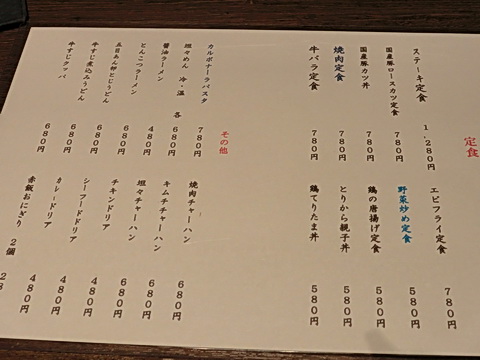 定食
ステーキ定食 1,280円
国産豚ロースカツ定食 780円
国産豚カツ丼 780円
焼肉定食 780円
牛バラ定食 780円
エビフライ定食 780円
野菜炒め定食 580円
鶏の唐揚げ定食 580円
とりから親子丼 580円
鶏てりたま丼 580円
その他
カルボナーラパスタ 780円
坦々めん 冷・温 各 680円
醤油ラーメン 480円
とんこつラーメン 680円
五目あん卵とじうどん 680円
牛すじ煮込みうどん 680円
牛すじクッパ 680円
焼肉チャーハン 680円
キムチチャーハン 680円
坦々チャーハン 680円
チキンドリア 680円
シーフードドリア 480円
カレードリア 480円
赤飯おにぎり 2個 480円
28